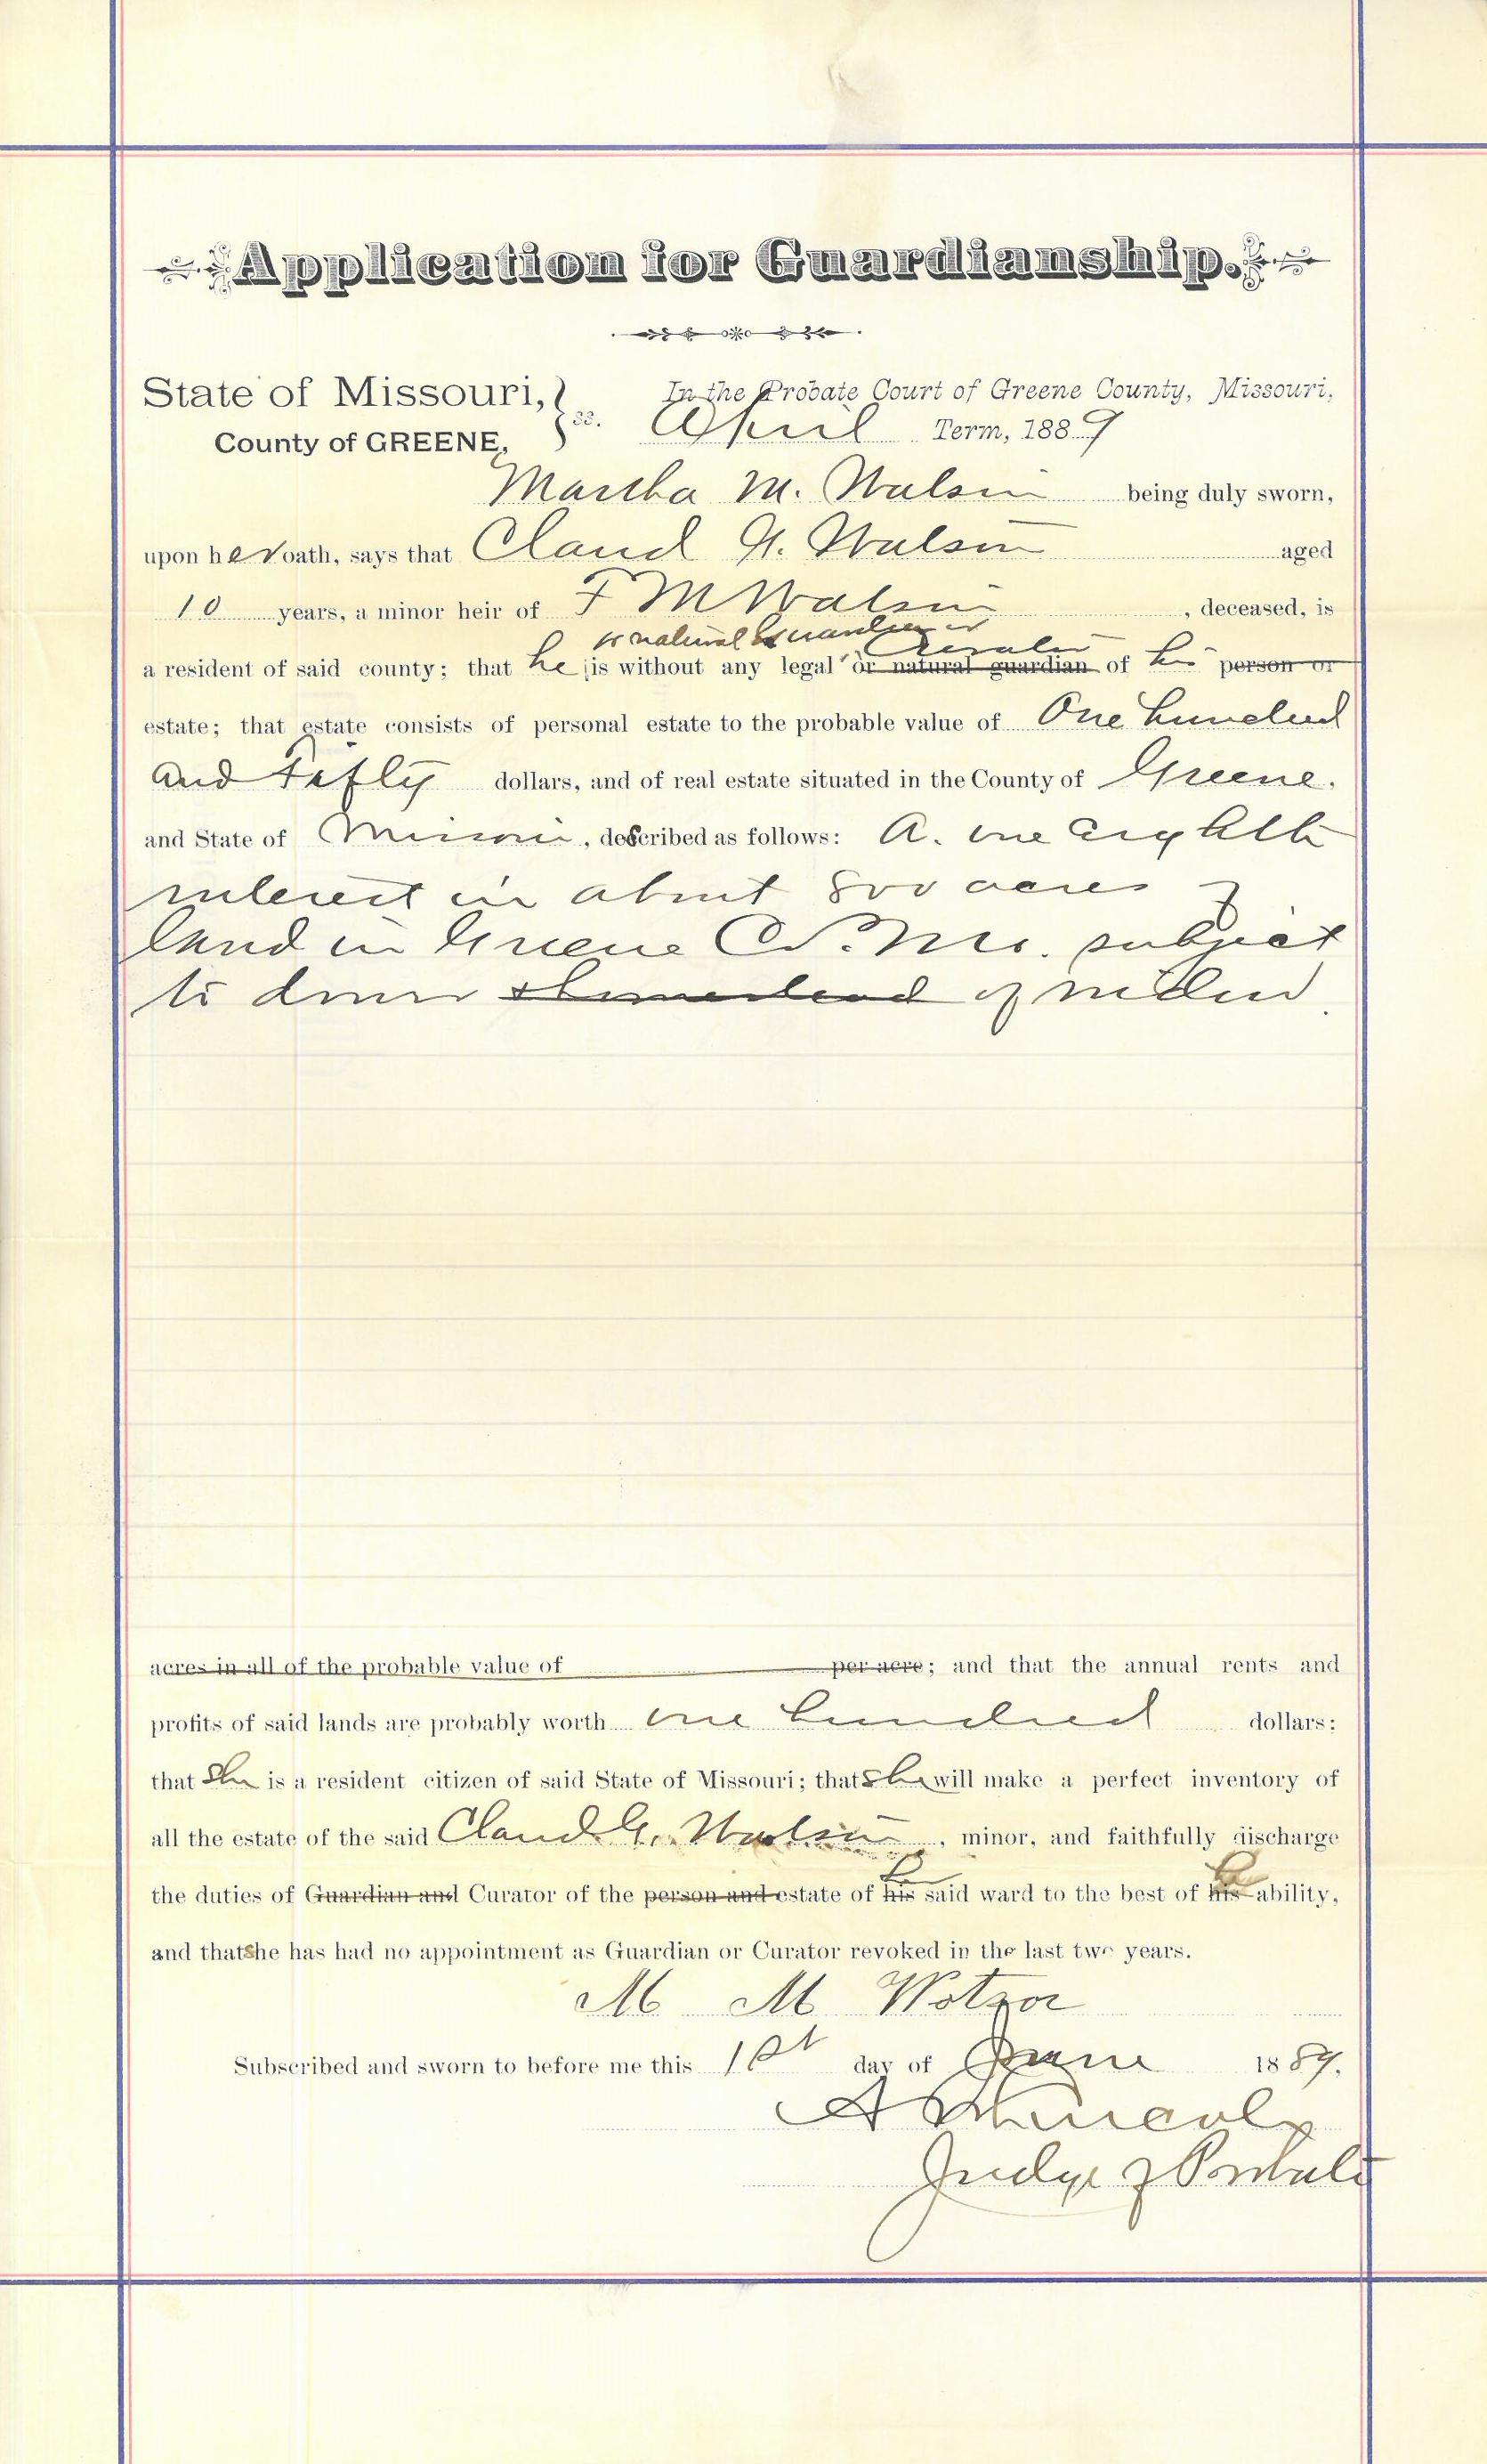 Application for Guardianship.
State of Missouri, } ss. In the Probate Court of Greene County, Missouri,
County of GREENE, April Term, 1889
Martha M. Watson being duly sworn,
upon her oath, says that Claud G. Watson aged
10 years, a minor heir of F M Watson, deceased, is
or natural Guardian or Curator
a resident of said county; that he is without any legal or natural guardian of his person or
estate; that estate consists of personal estate to the probable value of One hundred
and Fifty dollars, and of real estate situated in the County of Greene,
and State of Missouri, described as follows: A. one eighth
interest in about 800 acres of
land in Greene Co. Mo. subject
to dower & homestead of widow.
acres in all of the probable value of per acre; and that the annual rents and
profits of said lands are probably worth one hundred dollars;
that She is a resident citizen of said State of Missouri; that She will make a perfect inventory of
all the estate of the said Claud G. Watson, minor, and faithfully discharge
her her
the duties of Guardian and Curator of the person and estate of his said ward to the best of his ability,
and that She has had no appointment as Guardian or Curator revoked in the last two years.
M M Wotson
Subscribed and sworn to before me this 1st day of June 1889.
Judge of Probate